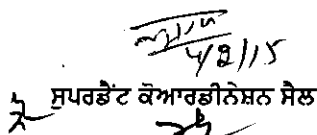 4/2/15
ਸੁਪਰਡੈਂਟ ਕੋਆਰਡੀਨੇਸ਼ਨ ਸੈਲ